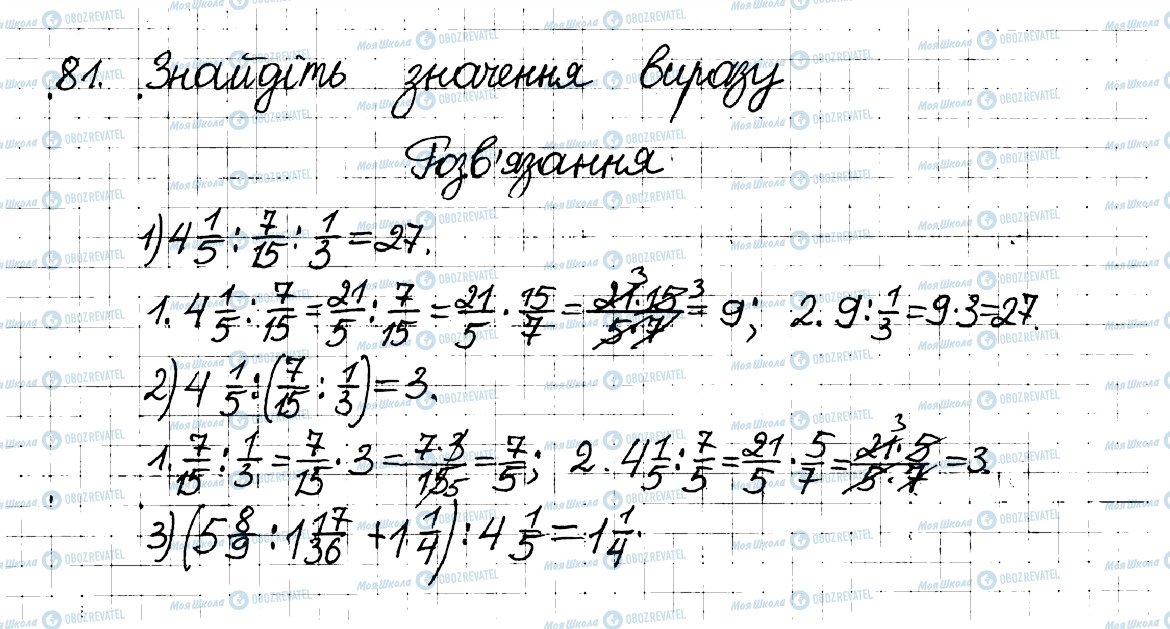 81. Знайдіть значення виразу
Розв'язання
1) 4 1/5 : 7/15 : 1/3 = 27.
1. 4 1/5 : 7/15 = 21/5 : 7/15 = 21/5 · 15/7 = 21·15/5·7 3 3 = 9; 2. 9 : 1/3 = 9·3 = 27.
2) 4 1/5 : (7/15 : 1/3) = 3.
1. 7/15 : 1/3 = 7/15 · 3 = 7·3/15 5 = 7/5; 2. 4 1/5 : 7/5 = 21/5 · 5/7 = 21·5/5·7 3 = 3.
3) (5 8/9 : 1 17/36 + 1 1/4) : 4 1/5 = 1 1/4.
МояШкола OBOZREVATEL